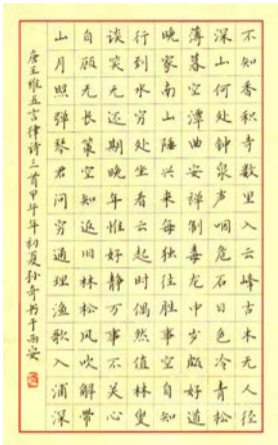 不知香积寺数里入云峰古木无人径
深山何处钟泉声咽危石日色冷青松
薄暮空潭曲安禅制毒龙中岁颇好道
晚家南山陲兴来每独往胜事空自知
行到水穷处坐看云起时偶然值林叟
谈笑无还期晚年惟好静万事不关心
自顾无长策空知返旧林松风吹解带
山月照弹琴君问穷通理渔歌入浦深
唐王维五言律诗三首甲午年初夏孙奇书于西安